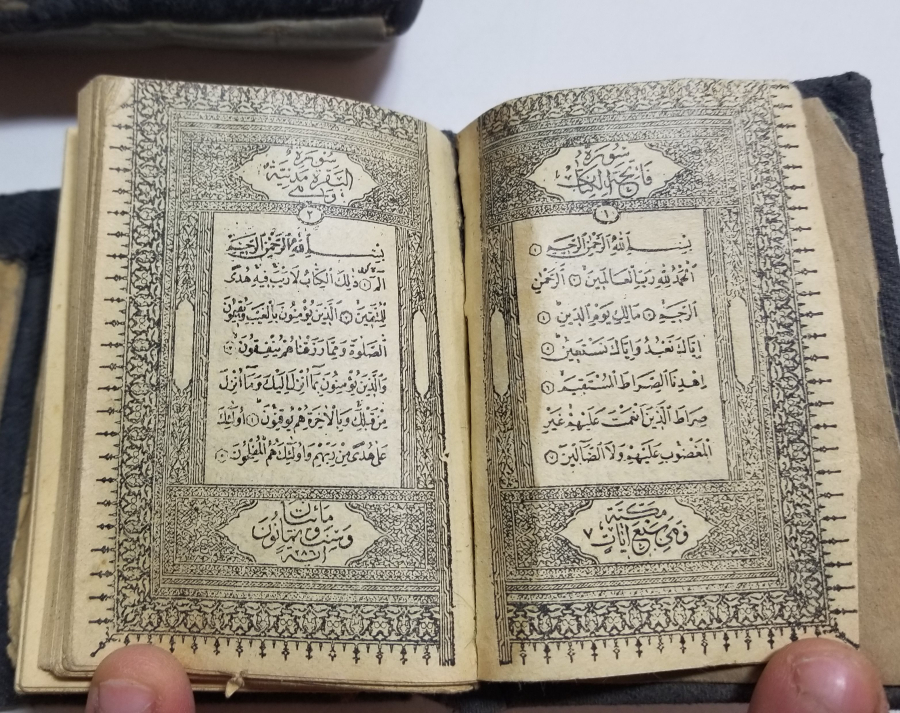 سورة
فاتحة الكتاب
١
بسم الله الرحمن الرحيم ١
الحمد لله رب العالمين ٢ الرحمن
الرحيم ٣ مالك يوم الدين ٤
اياك نعبد واياك نستعين ٥
اهدنا الصراط المستقيم ٦
صراط الذين انعمت عليهم غير
المغضوب عليهم ولا الضالين ٧
مكية
وهي سبع آيات ٧
سورة
البقرة مدنية
وهي
٢
بسم الله الرحمن الرحيم
الم ١ ذلك الكتاب لا ريب فيه هدى
للمتقين ٢ الذين يؤمنون بالغيب ويقيمون
الصلوة ومما رزقناهم ينفقون ٣
والذين يؤمنون بما انزل اليك وما انزل
من قبلك وبالآخرة هم يوقنون ٤ اولئك
على هدى من ربهم واولئك هم المفلحون ٥
مائتان
وست وثمانون
آية ٢٨٦